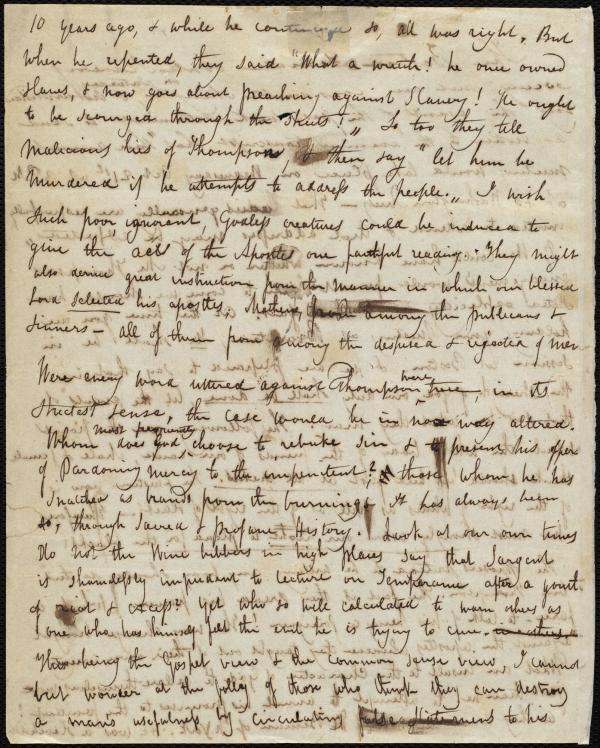 10 years ago, & while he continued so, all was right. But
when he repented, they said "What a wretch! he once owned
slaves, & now goes about preaching against Slavery! He ought
to be scourged through the Streets!" So too they tell
malicious lies of Thompson, & then say "let him be
murdered if he attempts to address the people." I wish
such poor, ignorant, Godless creatures could be induced to
give the acts of the Apostles one faithful reading. They might
also derive great instruction from the manner in which our blessed
Lord selected his apostles, Mathew, from among the publicans &
sinners – all of them from among the despised & rejected of men
Were every word uttered against Thompson were true, in its
strictest sense, the case would be in no way altered.
Whom does God most frequently choose to rebuke sin & to present his offer
of Pardoning mercy to the impenitent? those whom he has
snatched as brands from the burning. It has always been
so, through Sacred & profane History. Look at our own times
Do not the Wine bibbers in high places say that Sargent
is shamelessly impudent to lecture on Temperance after a youth
of riot & excess? Yet who so well calculated to warn others as
one who has himself felt the evil he is trying to cure. in others
This being the Gospel view & the Common Sense view, I cannot
but wonder at the folly of those who think they can destroy
a man's usefulness by circulating false statements to his